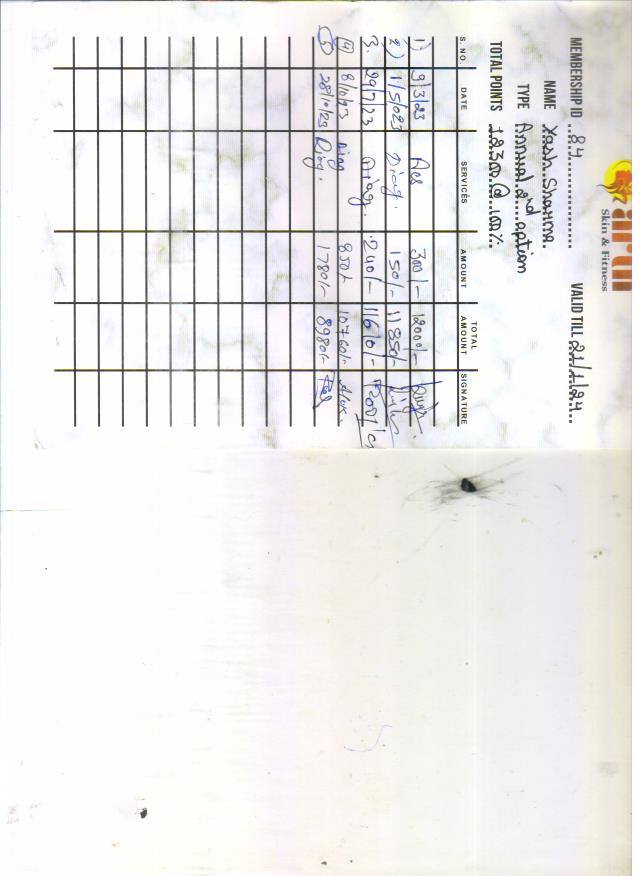 Skin & Fitness
MEMBERSHIP ID ...84... VALID TILL 21/1/24
NAME Yash Sharma.
TYPE Annual 2nd option
TOTAL POINTS 12300 @ 100%.
S. NO. DATE SERVICES AMOUNT TOTAL AMOUNT SIGNATURE
1) 9/3/23 Acs 300/- 12000/-
2) 1/5/023 Diag. 150/- 11850/-
3. 29/7/23 Diag. 240/- 11610/-
(4) 8/10/23 Diag 850/- 10760/-
(5) 28/10/23 Diag. 1780/- 8980/-